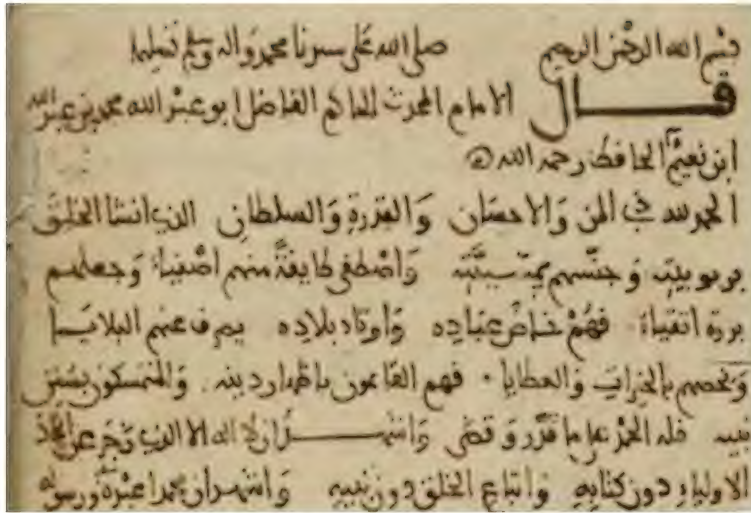 بسم الله الرحمن الرحيم صلى الله على سيدنا محمد واله وسلم تسليما
قال الامام المحدث الحاكم الفاضل ابو عبد الله محمد بن عبد الله
ابن نعيم الحافظ رحمه الله
الحمد لله ذي المن والاحسان والقدرة والسلطان الذي انشا الخلق
بربوبيته وجنسهم بمشيئته واصطفى طايفة منهم اصفياء وجعلهم
بررة اتقياء فهم خاص عباده واوتاد بلاده يصرف عنهم البلايا
ويخصهم بالخيرات والعطايا فهم القائمون باظهار دينه والمتمسكون بسنن
نبيه فله الحمد على ما قدر وقضى واشهد ان لا اله الا الله الذي زجر عن اتخاذ
الاولياء دون كتابه واتباع الخلق دون نبيه واشهد ان محمدا عبده ورسوله